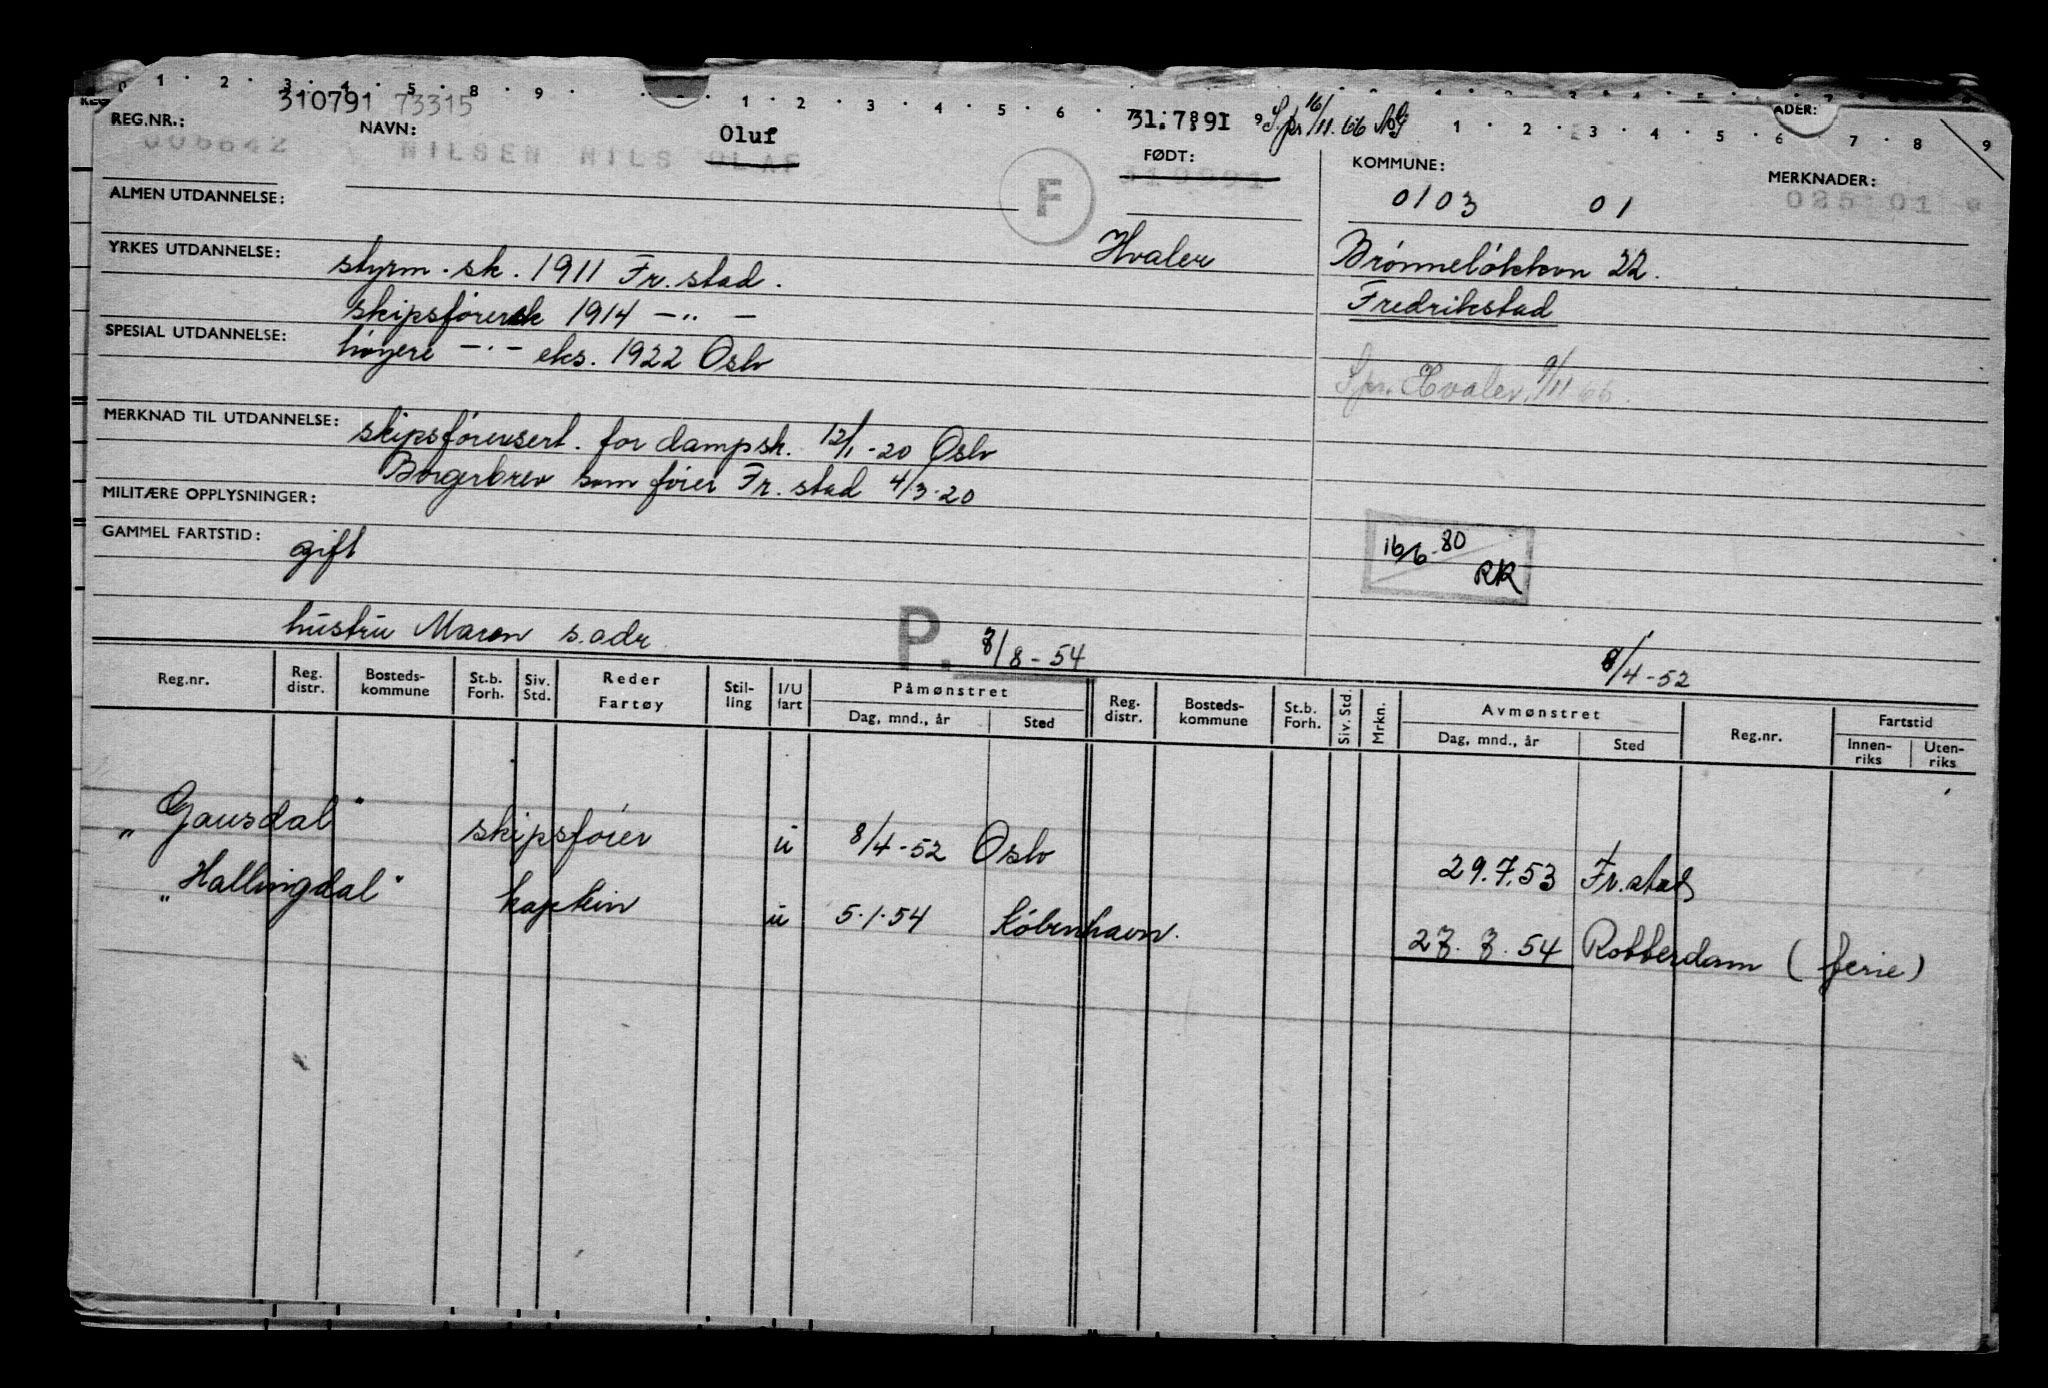 310791 73315
REG.NR.: NAVN: Oluf 31.7.891 Spr 16/11.66
006642 NILSEN NILS OLAF F FØDT: KOMMUNE: MERKNADER:
0103 01 025 01
ALMEN UTDANNELSE:
YRKES UTDANNELSE: styrm.sk. 1911 Fr.stad. Hvaler Brønneløkken 22.
skipsførersk 1914 -"- Fredrikstad
SPESIAL UTDANNELSE: høyere -"- eks. 1922 Oslo
Spr. Hvaler, 9/11 66.
MERKNAD TIL UTDANNELSE: skipsførersert. for dampsk. 12/1-20 Oslo
Borgerbrev som fører Fr.stad 4/3-20
MILITÆRE OPPLYSNINGER:
GAMMEL FARTSTID: gift 16/6-80 RR
hustru Maren s.adr. P. 3/8-54 8/4-52
Reg.nr. Reg. distr. Bosteds-kommune St.b. Forh. Siv. Std. Reder Fartøy Stil-ling I/U fart Påmønstret Dag, mnd., år Sted Reg. distr. Bosteds-kommune St.b. Forh. Siv. Std. Mrkn. Avmønstret Dag, mnd., år Sted Reg.nr. Fartstid Innen-riks Uten-riks
"Gausdal" skipsfører u 8/4-52 Oslo 29.7.53 Fr.stad
"Hallingdal" kaptein u 5.1.54 København. 27.7.54 Rotterdam (ferie)